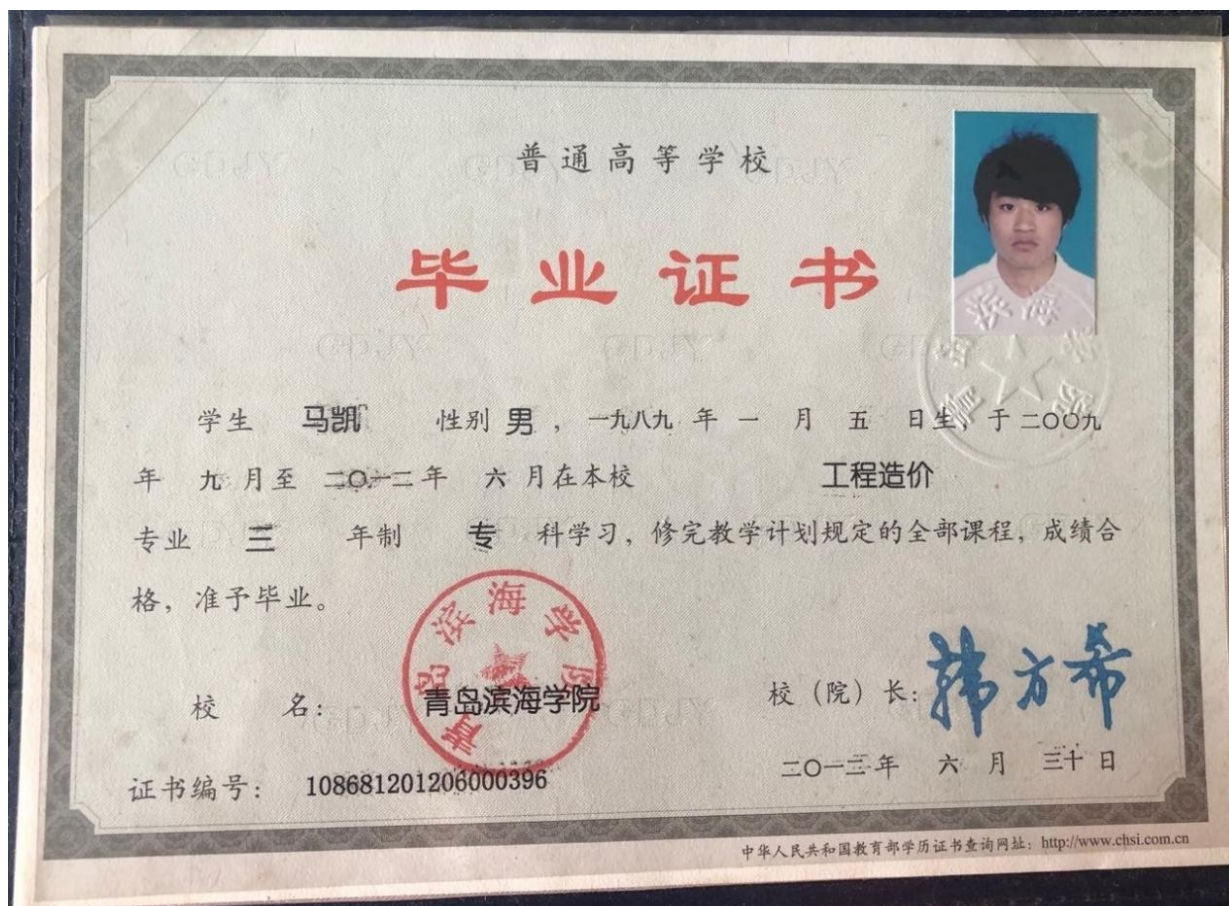 普通高等学校
毕业证书
学生 马凯 性别 男 ， 一九八九 年 一 月 五 日生，于 二〇〇九
年 九 月至 二〇一二 年 六 月在本校 工程造价
专业 三 年制 专 科学习，修完教学计划规定的全部课程，成绩合
格，准予毕业。
青岛滨海学院
校 名： 青岛滨海学院
校（院）长： 韩方希
证书编号： 108681201206000396
二〇一二年 六 月 三十 日
中华人民共和国教育部学历证书查询网址：http://www.chsi.com.cn